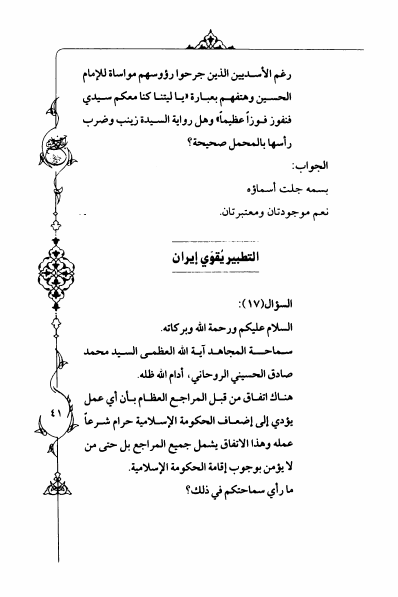 رغم الأسديين الذين جرحوا رؤوسهم مواساة للإمام
الحسين وهتفهم بعبارة «يا ليتنا كنا معكم سيدي
فنفوز فوزاً عظيماً» وهل رواية السيدة زينب وضرب
رأسها بالمحمل صحيحة؟
الجواب:
بسمه جلت أسماؤه
نعم موجودتان ومعتبرتان.
التطبير يُقوّي إيران
السؤال(١٧):
السلام عليكم ورحمة الله وبركاته.
سماحة المجاهد آية الله العظمى السيد محمد
صادق الحسيني الروحاني، أدام الله ظله.
هناك اتفاق من قبل المراجع العظام بأن أي عمل
يؤدي إلى إضعاف الحكومة الإسلامية حرام شرعاً
عمله وهذا الاتفاق يشمل جميع المراجع بل حتى من
لا يؤمن بوجوب إقامة الحكومة الإسلامية.
ما رأي سماحتكم في ذلك؟
٤١